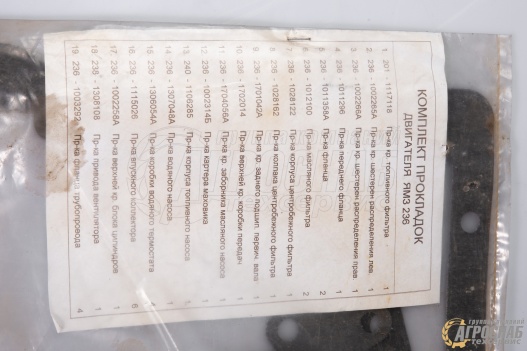 КОМПЛЕКТ ПРОКЛАДОК
ДВИГАТЕЛЯ ЯМЗ 236
1 201 - 1117118 Пр-ка кр. топливного фильтра 1
2 236 - 1002265А Пр-ка кр. шестерен распределения лев. 1
3 236 - 1002266А Пр-ка кр. шестерен распределения прав. 1
4 236 - 1011296 Пр-ка переднего фланца 1
5 236 - 1011358А Пр-ка фланца 2
6 236 - 1012100 Пр-ка масляного фильтра 2
7 236 - 1028122 Пр-ка корпуса центробежного фильтра 1
8 236 - 1028162 Пр-ка колпака центробежного фильтра 1
9 236 - 1701042А Пр-ка кр. заднего подшип. первич. вала 1
10 236 - 1702014 Пр-ка верхней кр. коробки передач 1
11 236 - 1704056А Пр-ка кр. заборника масляного насоса 1
12 236 - 1002314Б Пр-ка картера маховика 1
13 240 - 1106285 Пр-ка корпуса топливного насоса 1
14 236 - 1307048А Пр-ка водяного насоса 1
15 236 - 1306054А Пр-ка коробки водяного термостата 4
16 236 - 1115026 Пр-ка впускного коллектора 6
17 236 - 1002256А Пр-ка верхней кр. блока цилиндров 1
18 236 - 1308108 Пр-ка привода вентилятора 1
19 236 - 1003292 Пр-ка фланца трубопровода 4
АГРОСНАБ